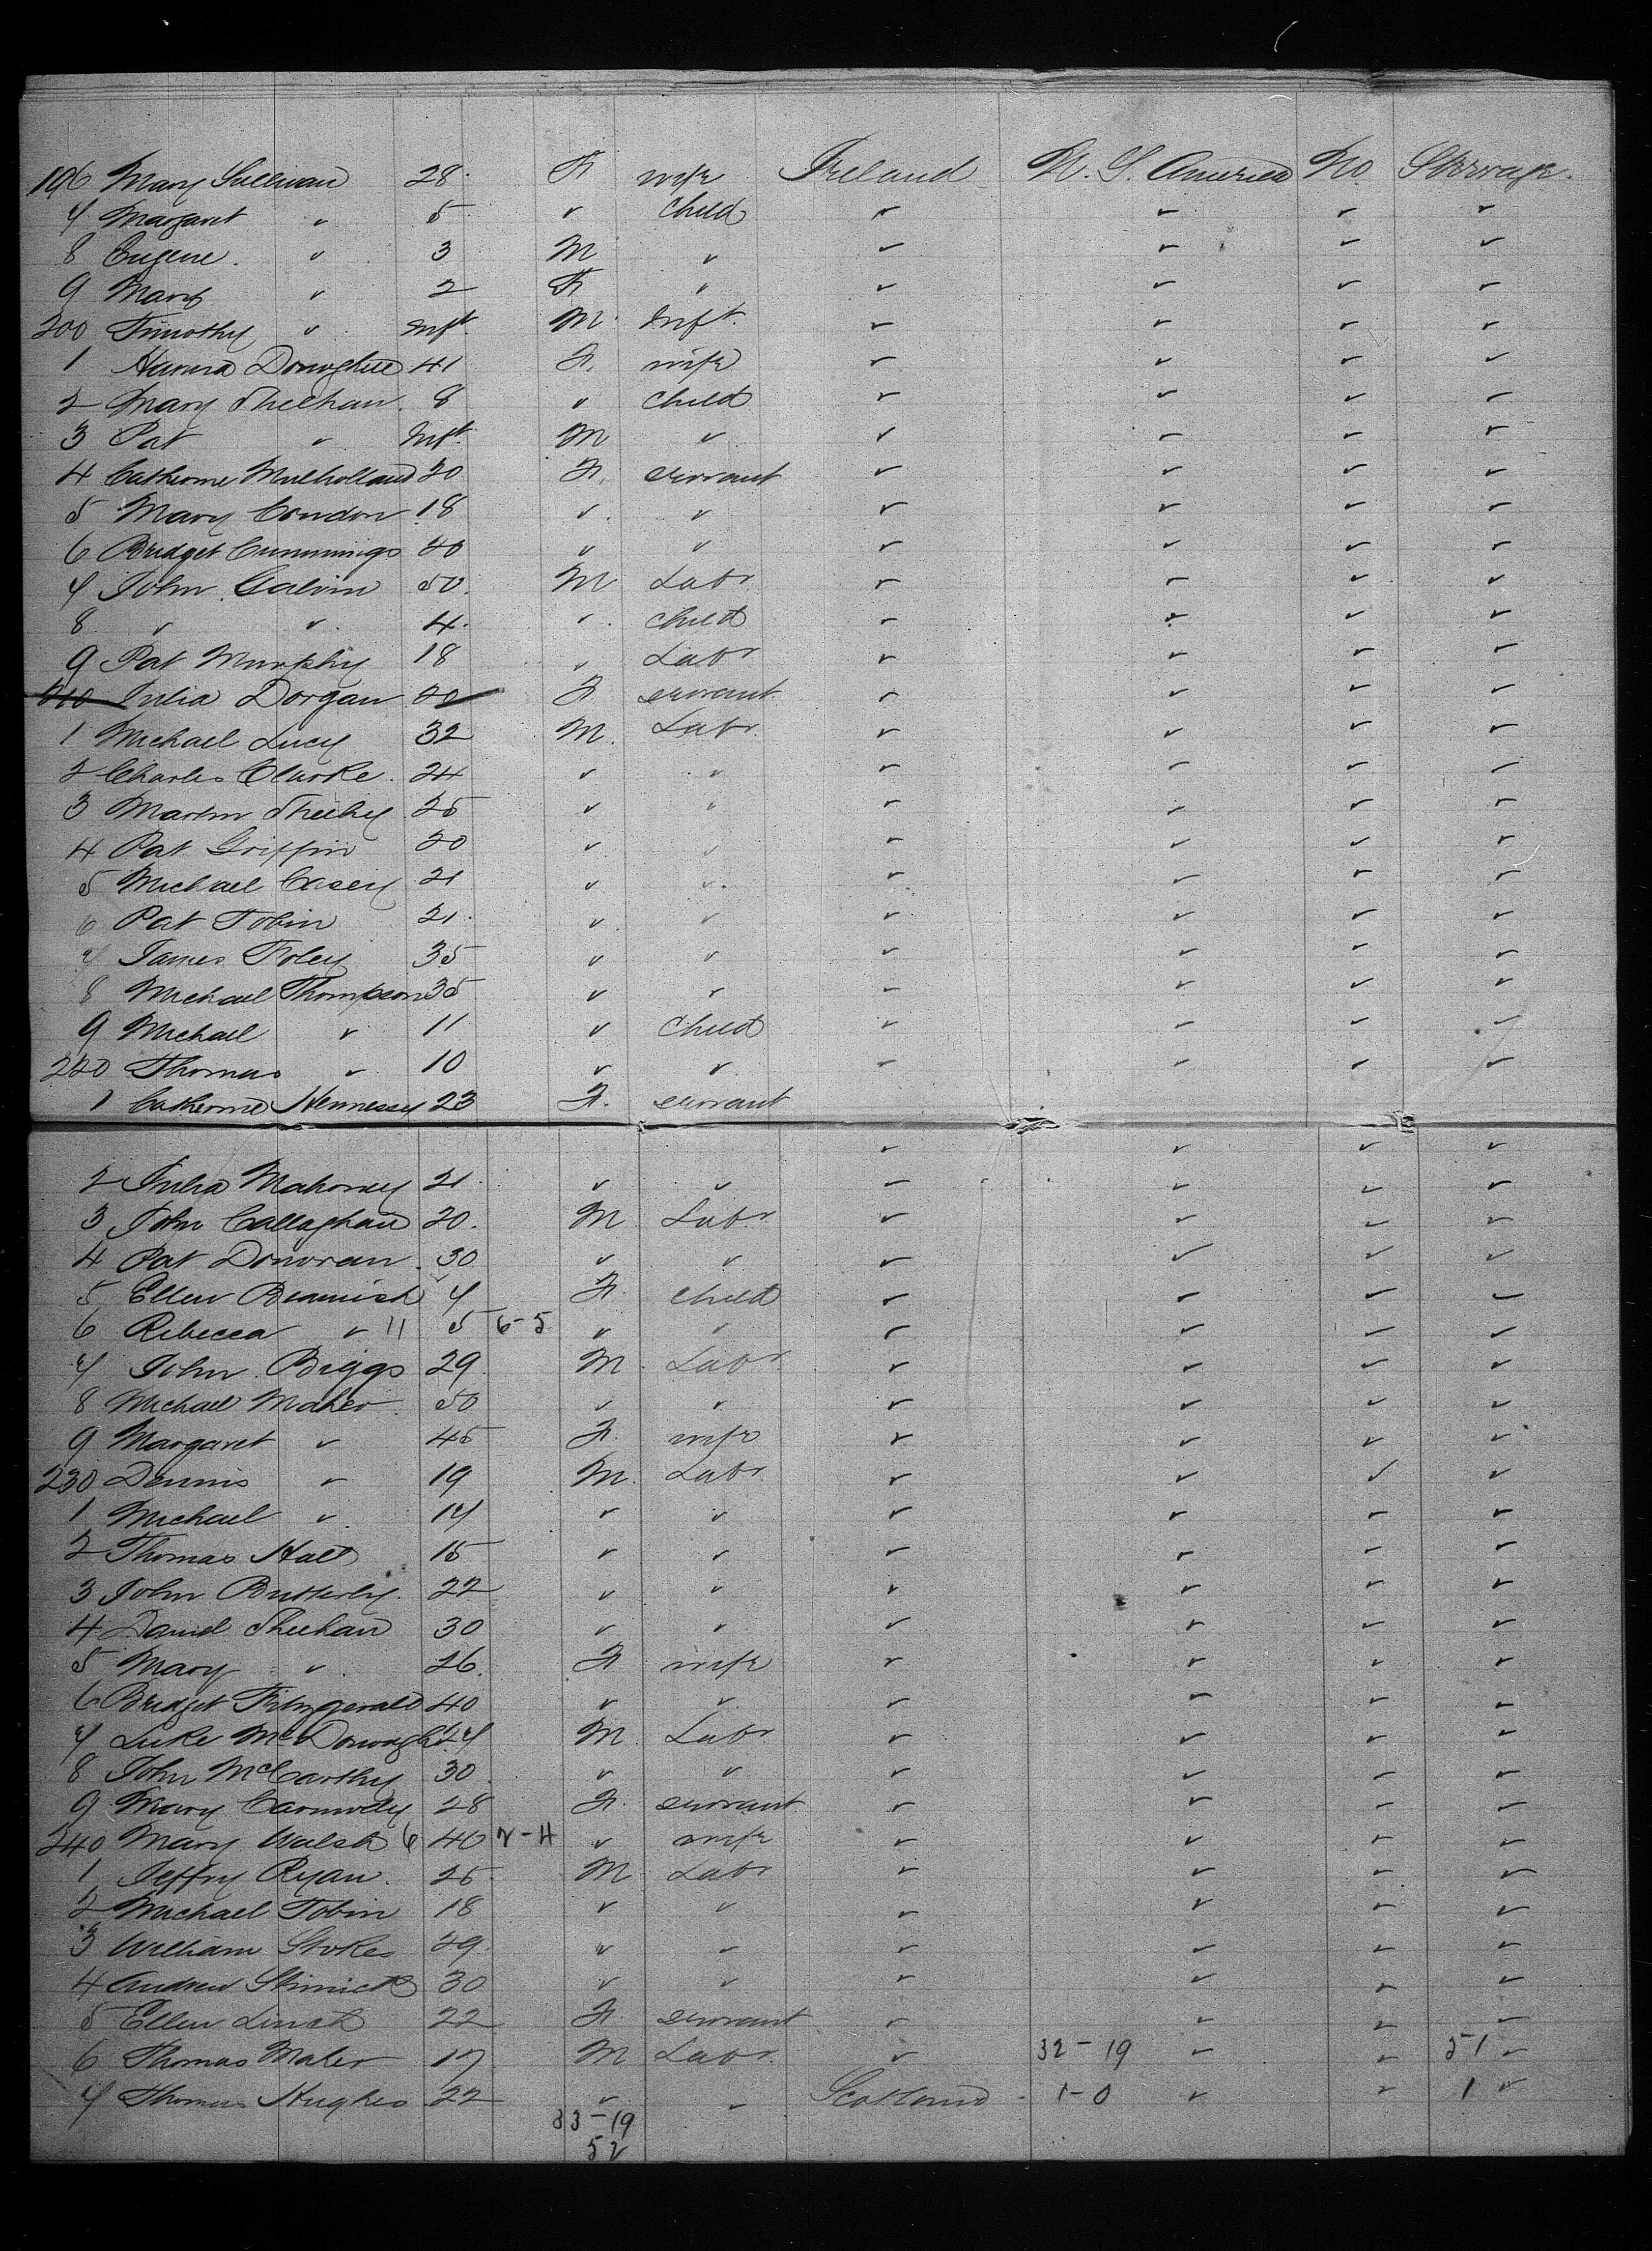 196 Mary Sullivan 28 F wife Ireland U.S. America No Steerage
7 Margaret " 5 " Child " " " "
8 Eugene " 3 M " " " " "
9 Mary " 2 F " " " " "
200 Timothy " Inft M Inft " " " "
1 Hanna Donoghue 41 F wife " " " "
2 Mary Sheehan 8 " Child " " " "
3 Pat " Inft M " " " " "
4 Catherine Mulholland 20 F servant " " " "
5 Mary Condon 18 " " " " " "
6 Bridget Cummings 20 " " " " " "
7 John Galvin 50 M Labr " " " "
8 " " 4 " Child " " " "
9 Pat Murphy 18 " Labr " " " "
210 Julia Dorgan 20 F servant " " " "
1 Michael Lucy 32 M Labr " " " "
2 Charles Clarke 24 " " " " " "
3 Martin Sheehy 25 " " " " " "
4 Pat Griffin 20 " " " " " "
5 Michael Casey 21 " " " " " "
6 Pat Tobin 21 " " " " " "
7 James Foley 35 " " " " " "
8 Michael Thompson 35 " " " " " "
9 Michael " 11 " Child " " " "
220 Thomas " 10 " " " " " "
1 Catherine Hennessy 23 F servant " " " "
2 Julia Mahoney 21 " " " " " "
3 John Callaghan 20 M Labr " " " "
4 Pat Donovan 30 " " " " " "
5 Ellen Beamish 7 F Child " " " "
6 Rebecca " 11 5 6-5 " " " " " "
7 John Briggs 29 M Labr " " " "
8 Michael Maher 50 " " " " " "
9 Margaret " 45 F wife " " " "
230 Dennis " 19 M Labr " " " "
1 Michael " 17 " " " " " "
2 Thomas Hall 15 " " " " " "
3 John Butterly 22 " " " " " "
4 David Sheehan 30 " " " " " "
5 Mary " 26 F wife " " " "
6 Bridget Fitzgerald 40 " " " " " "
7 Luke McDonogh 27 M Labr " " " "
8 John McCarthy 30 " " " " " "
9 Mary Carmody 28 F servant " " " "
240 Mary Walsh 6 40 2-4 " wife " " " "
1 Jeffry Ryan 25 M Labr " " " "
2 Michael Tobin 18 " " " " " "
3 William Stokes 29 " " " " " "
4 Andrew 30 " " " " " "
5 Ellen 22 F servant " " " "
6 Thomas Maher 17 M Labr " 32-19 " " 51 "
7 Thomas Hughes 22 " " Scotland 1-0 " " 1 "
33-19
52